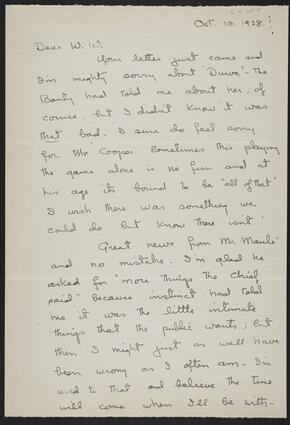 Oct. 10. 1928.
Dear W. W.
Your letter just came and
I'm mighty sorry about "Duwa" - The
Banty had told me about her, of
course, but I didn't know it was
that bad. I sure do feel sorry
for Mr Cooper. Sometimes this playing
the game alone is no fun and at
his age its bound to be "all of that"
I wish there was something we
could do but know there isn't!
Great news from Mr. Maule
and no mistake. I'm glad he
asked for "more things the Chief
said" because instinct had told
me it was the little intimate
things that the public wants; but
then I might just as well have
been wrong as I often am - I'm
used to that and believe the time
will come when I'll be with-